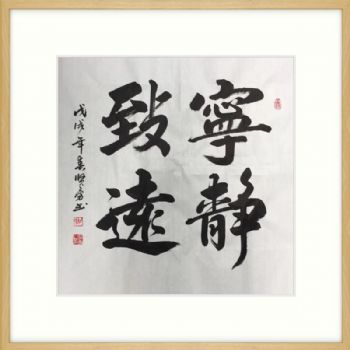 寧靜
致遠
戊戌年春